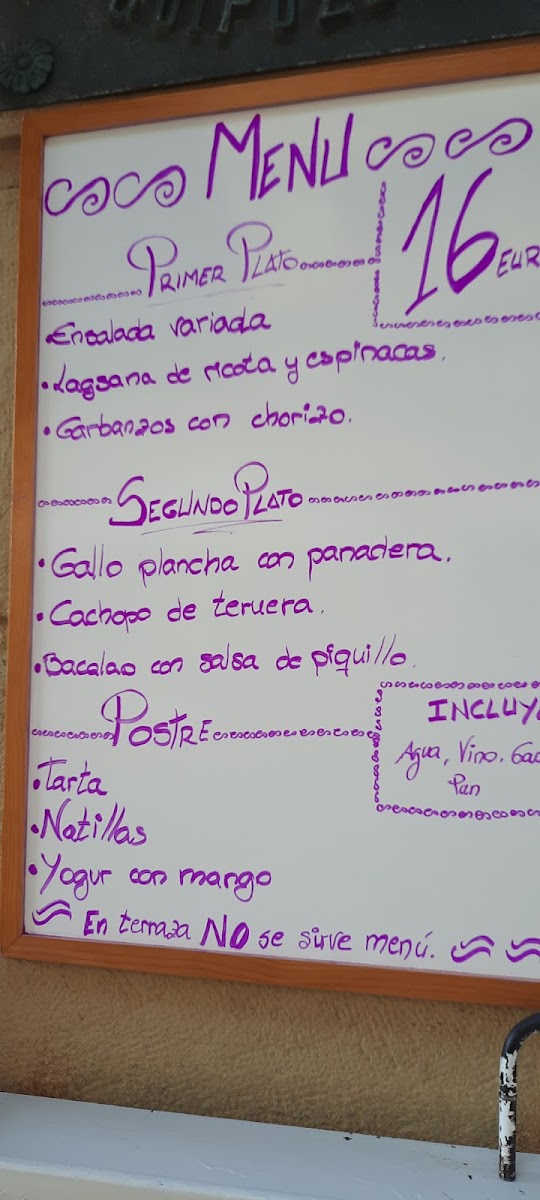 MENU
16 EUR
PRIMER PLATO
•Ensalada variada
•Lagsana de ricota y espinacas.
•Garbanzos con chorizo.
SEGUNDO PLATO
•Gallo plancha con panadera.
•Cachopo de teruera.
•Bacalao con salsa de piquillo.
POSTRE
INCLUY
Agua, Vino. Gas
Pan
•Tarta
•Natillas
•Yogur con mango
En terraza NO se sirve menú.